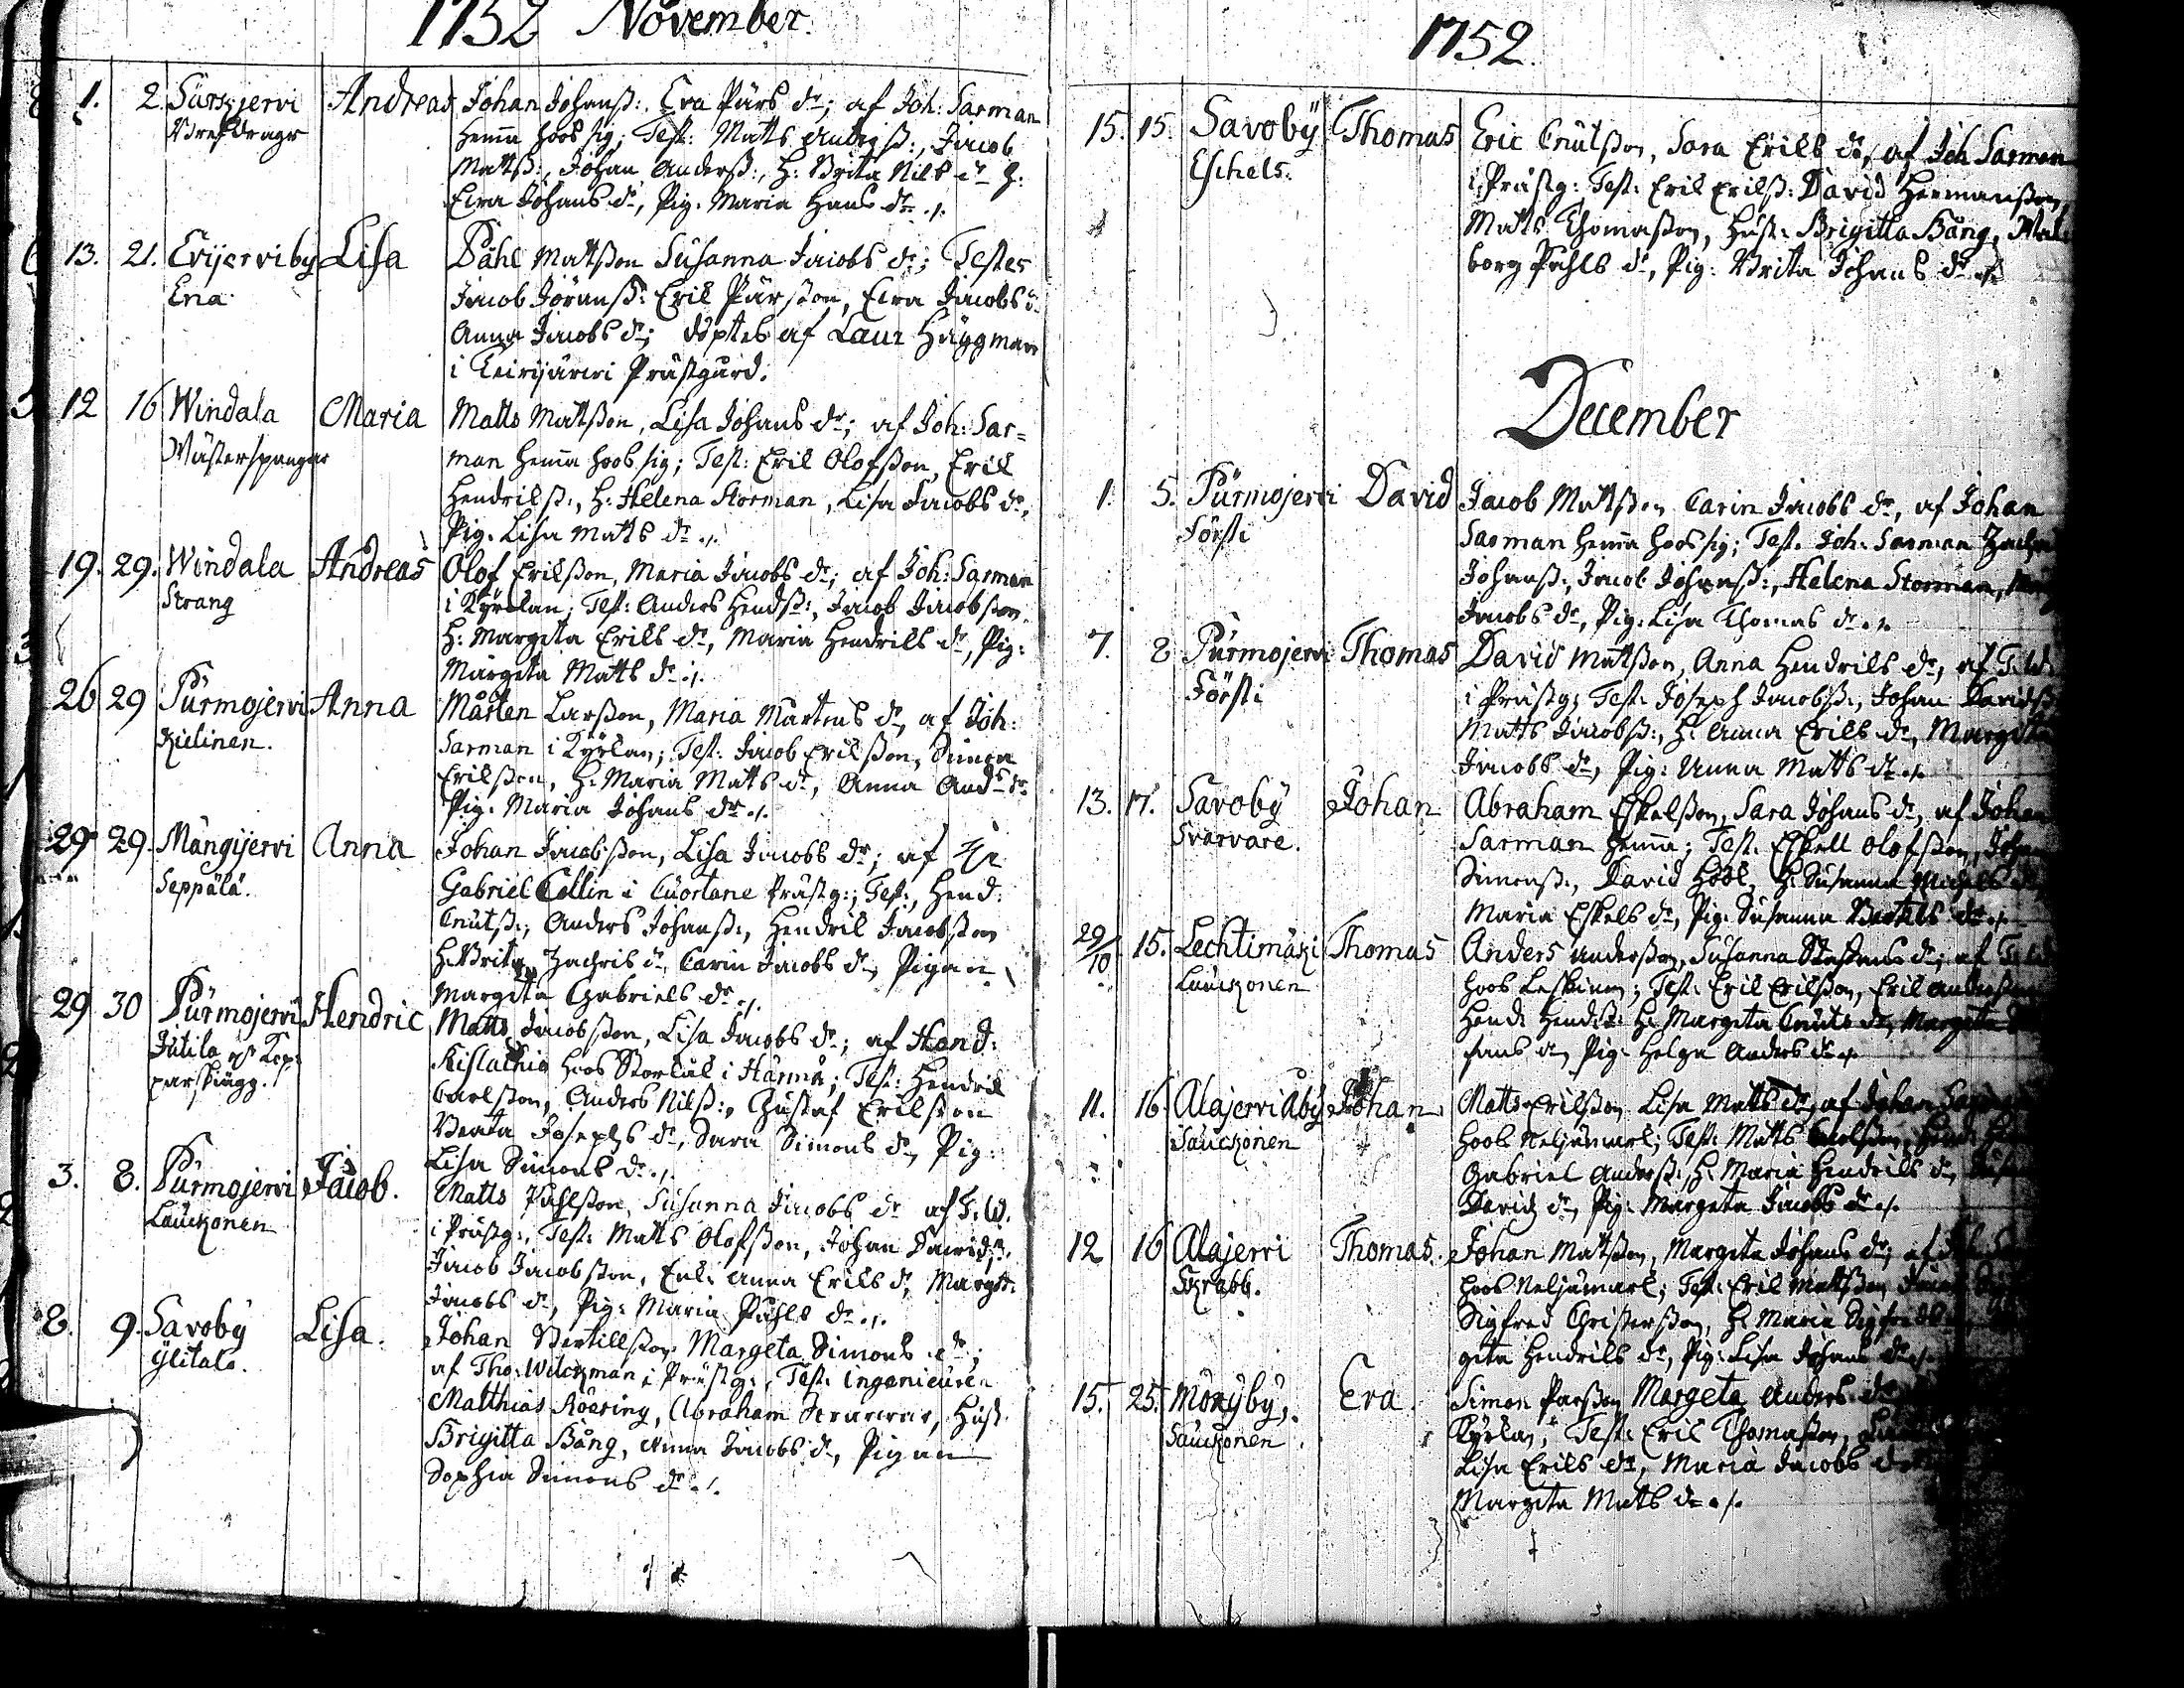 1752 November.
1. 2 Särkjervi Andreas Johan Johanß:. Eva Pärs dr; af Joh: Sarman
hema hoos sig; Test: Matts Anderß:, Jacob
Mattß:, Johan Anderß:, H: Brita Nils dr H:
Eva Johans dr, Pig. Maria Hans dr ./.
13. 21. Evijerviby Lisa Påhl Mattßon Susanna Jacobs dr; Testes
Ena. Jacob Jöranß: Eric Pärßon, Eva Jacobs d.
Anna Jacobs dr; döptes af Laur Häggman
i Präстgård.
12 16 Windala Maria Matts Mattßon, Lisa Johans dr; af Joh: Sar=
man hema hoos sig; Test: Eric Olofsßon, Eric
Hendricß:, H: Helena Storman, Lisa Jacobs dr,
Pig. Lisa Matts dr ./.
19. 29. Windala Andreas Olof Ericßon, Maria Jacobs dr; af Joh: Sarman
Strang i Kyrckan; Test: Anders Hendß:, Jacob Jacobßon.
H: Margeta Erics dr, Maria Hendrics dr, Pig:
Margeta Matts dr ./.
26 29 Purmojervi Anna Mårten Larßon, Maria Mårtens dr, af Joh:
Kielinen. Sarman i Kyrckan; Test: Jacob Ericßon, Simon
Ericßon, H: Maria Matts dr, Anna And: dr
Pig. Maria Johans dr ./.
29 29. Mängijervi Anna Johan Jacobßon, Lisa Jacobs dr; af Hr
Seppälä. Gabriel Cellin i Cuortane Prästg:; Test:, Hend:
Cnutß:, Anders Johanß:, Hendric Jacobßon
H: Brita Zachris dr, Carin Jacobs dr, Pigan
Margeta Gabriels dr ./.
29 30 Purmojervi Hendric Matts Jacobßon, Lisa Jacobs dr; af Hend:
Jutila hoos i Härmä; Test: Hendric
Carlßon, Anders Nilß:, Gustaf Ericßon
Beata Josephs dr, Sara Simons dr, Pig:
Lisa Simons dr ./.
3. 8. Purmojervi Jacob. Matts Påhlßon, Susanna Jacobs dr af T. W.
Lauckonen i Prästg:, Test: Matts Olofßon, Johan Davidß.
Jacob Jacobßon, Enk: Anna Erics dr, Marget:
Jacobs dr, Pig: Maria Påhls dr ./.
8. 9. Savoby Lisa. Johan Bertillßon Margeta Simons dr;
Ylitalo. af Tho: Wilckman i Prästg:, Test: Ingenieuren
Matthias Röering, Abraham Svarvar, Hust.
Brigitta Bång, Anna Jacobs dr, Pigan
Sophia Simons dr ./.
1752.
15. 15. Savoby Thomas Eric Cnutßon, Sara Erics dr, af Joh Sarman
Eschels. i Prästg: Test: Eric Ericß: David Hermanßon,
Matts Thomaßon, Hust: Brigitta Bång, Wal
borg Påhls dr, Pig: Brita Johans dr ./.
December
1. 5. Purmojervi David Jacob Mattßon Carin Jacobs dr, af Johan
Försti Sarman hema hoos sig; Test. Joh: Sarman
Johanß:, Jacob Johanß:, Helena Storman,
Jacobs dr, Pig: Lisa Thomas dr ./.
7. 8 Purmojervi Thomas David Mattßon, Anna Hendrics dr, af
Försti i Prästg; Test: Joseph Jacobß:, Johan Davidß
Matts Jacobß:, H: Anna Erics dr, Margeta
Jacobs dr, Pig: Anna Matts dr ./.
13. 17. Savoby Johan Abraham Eskelßon, Sara Johans dr, af Johan
Svarvare. Sarman hema; Test: Eskell Olofßon, Johan
Simonß:, David H: Susanna Michels
Maria Eskels dr, Pig: Susanna Bertils dr ./.
29/10 15. Lechtimäki Thomas Anders Anderßon, Susanna Staffans dr; af
Lauckonen hoos Leskinen; Test: Eric Ericßon, Eric Anderßon
Hend: Hendß: H: Margeta Cnuts dr, Margeta
hans dr, Pig: Helga Anders dr ./.
11. 16. Alajerviby Johan Matts Ericßon Lisa Matts dr, af Johan
Sauckonen hoos Neljämarck; Test: Matts
Gabriel Anderß: H: Maria Hendrics dr,
Davidz dr, Pig: Margeta Jacobs dr ./.
12 16 Alajervi Thomas. Johan Mattßon, Margeta Johans dr; af
Skrabb. hoos Neljämarck; Test: Eric Mattßon
Sigfred Christerßon, H: Maria Sigfreds
geta Hendrics dr, Pig: Lisa Johans dr ./.
15. 25. Möckyby, Eva. Simon Parßon Margeta Anders dr
Sauckonen Kyrckan; Test: Eric Thomaßon,
Lisa Erics dr, Maria Jacobs dr
Margeta Matts dr ./.